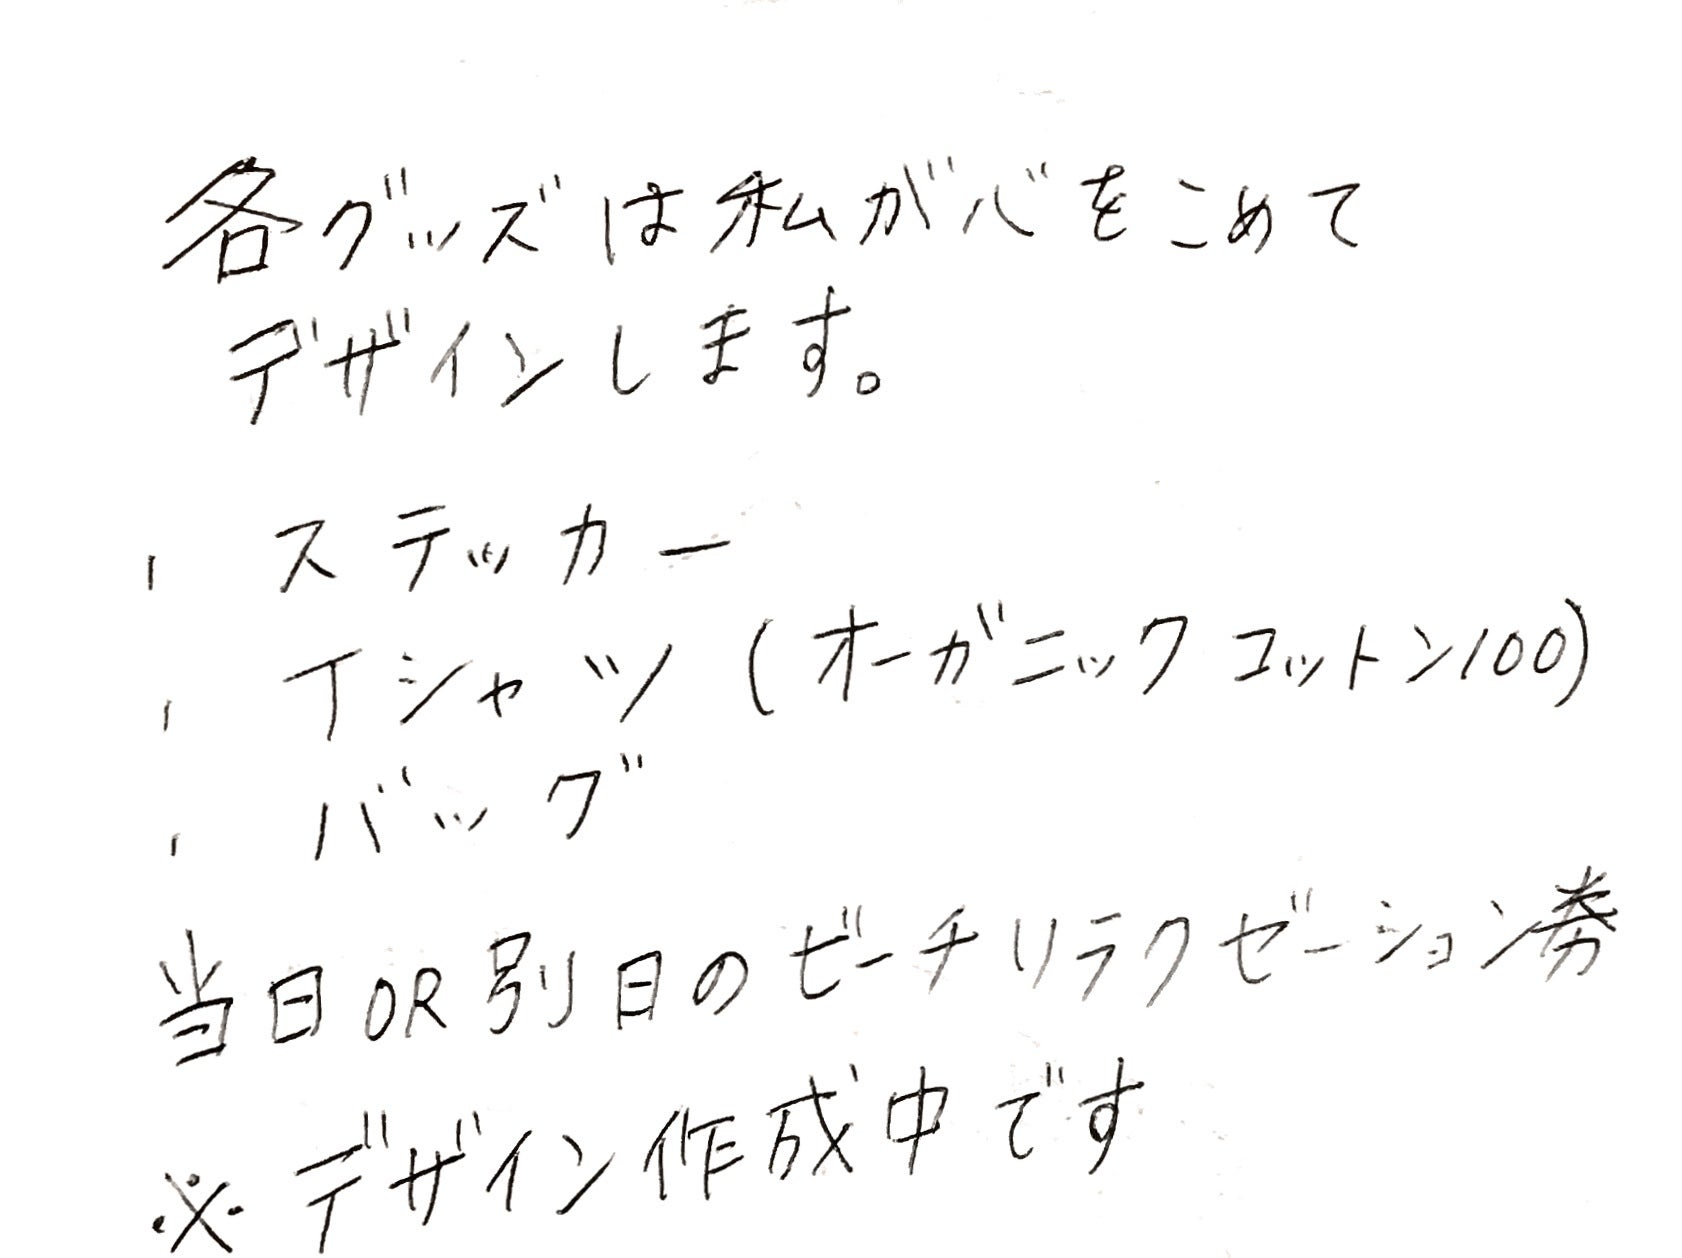 各グッズは私が心をこめて
デザインします。
・ ステッカー
・ Tシャツ (オーガニックコットン100)
・ バッグ
当日OR別日のビーチリラクゼーション券
※デザイン作成中です